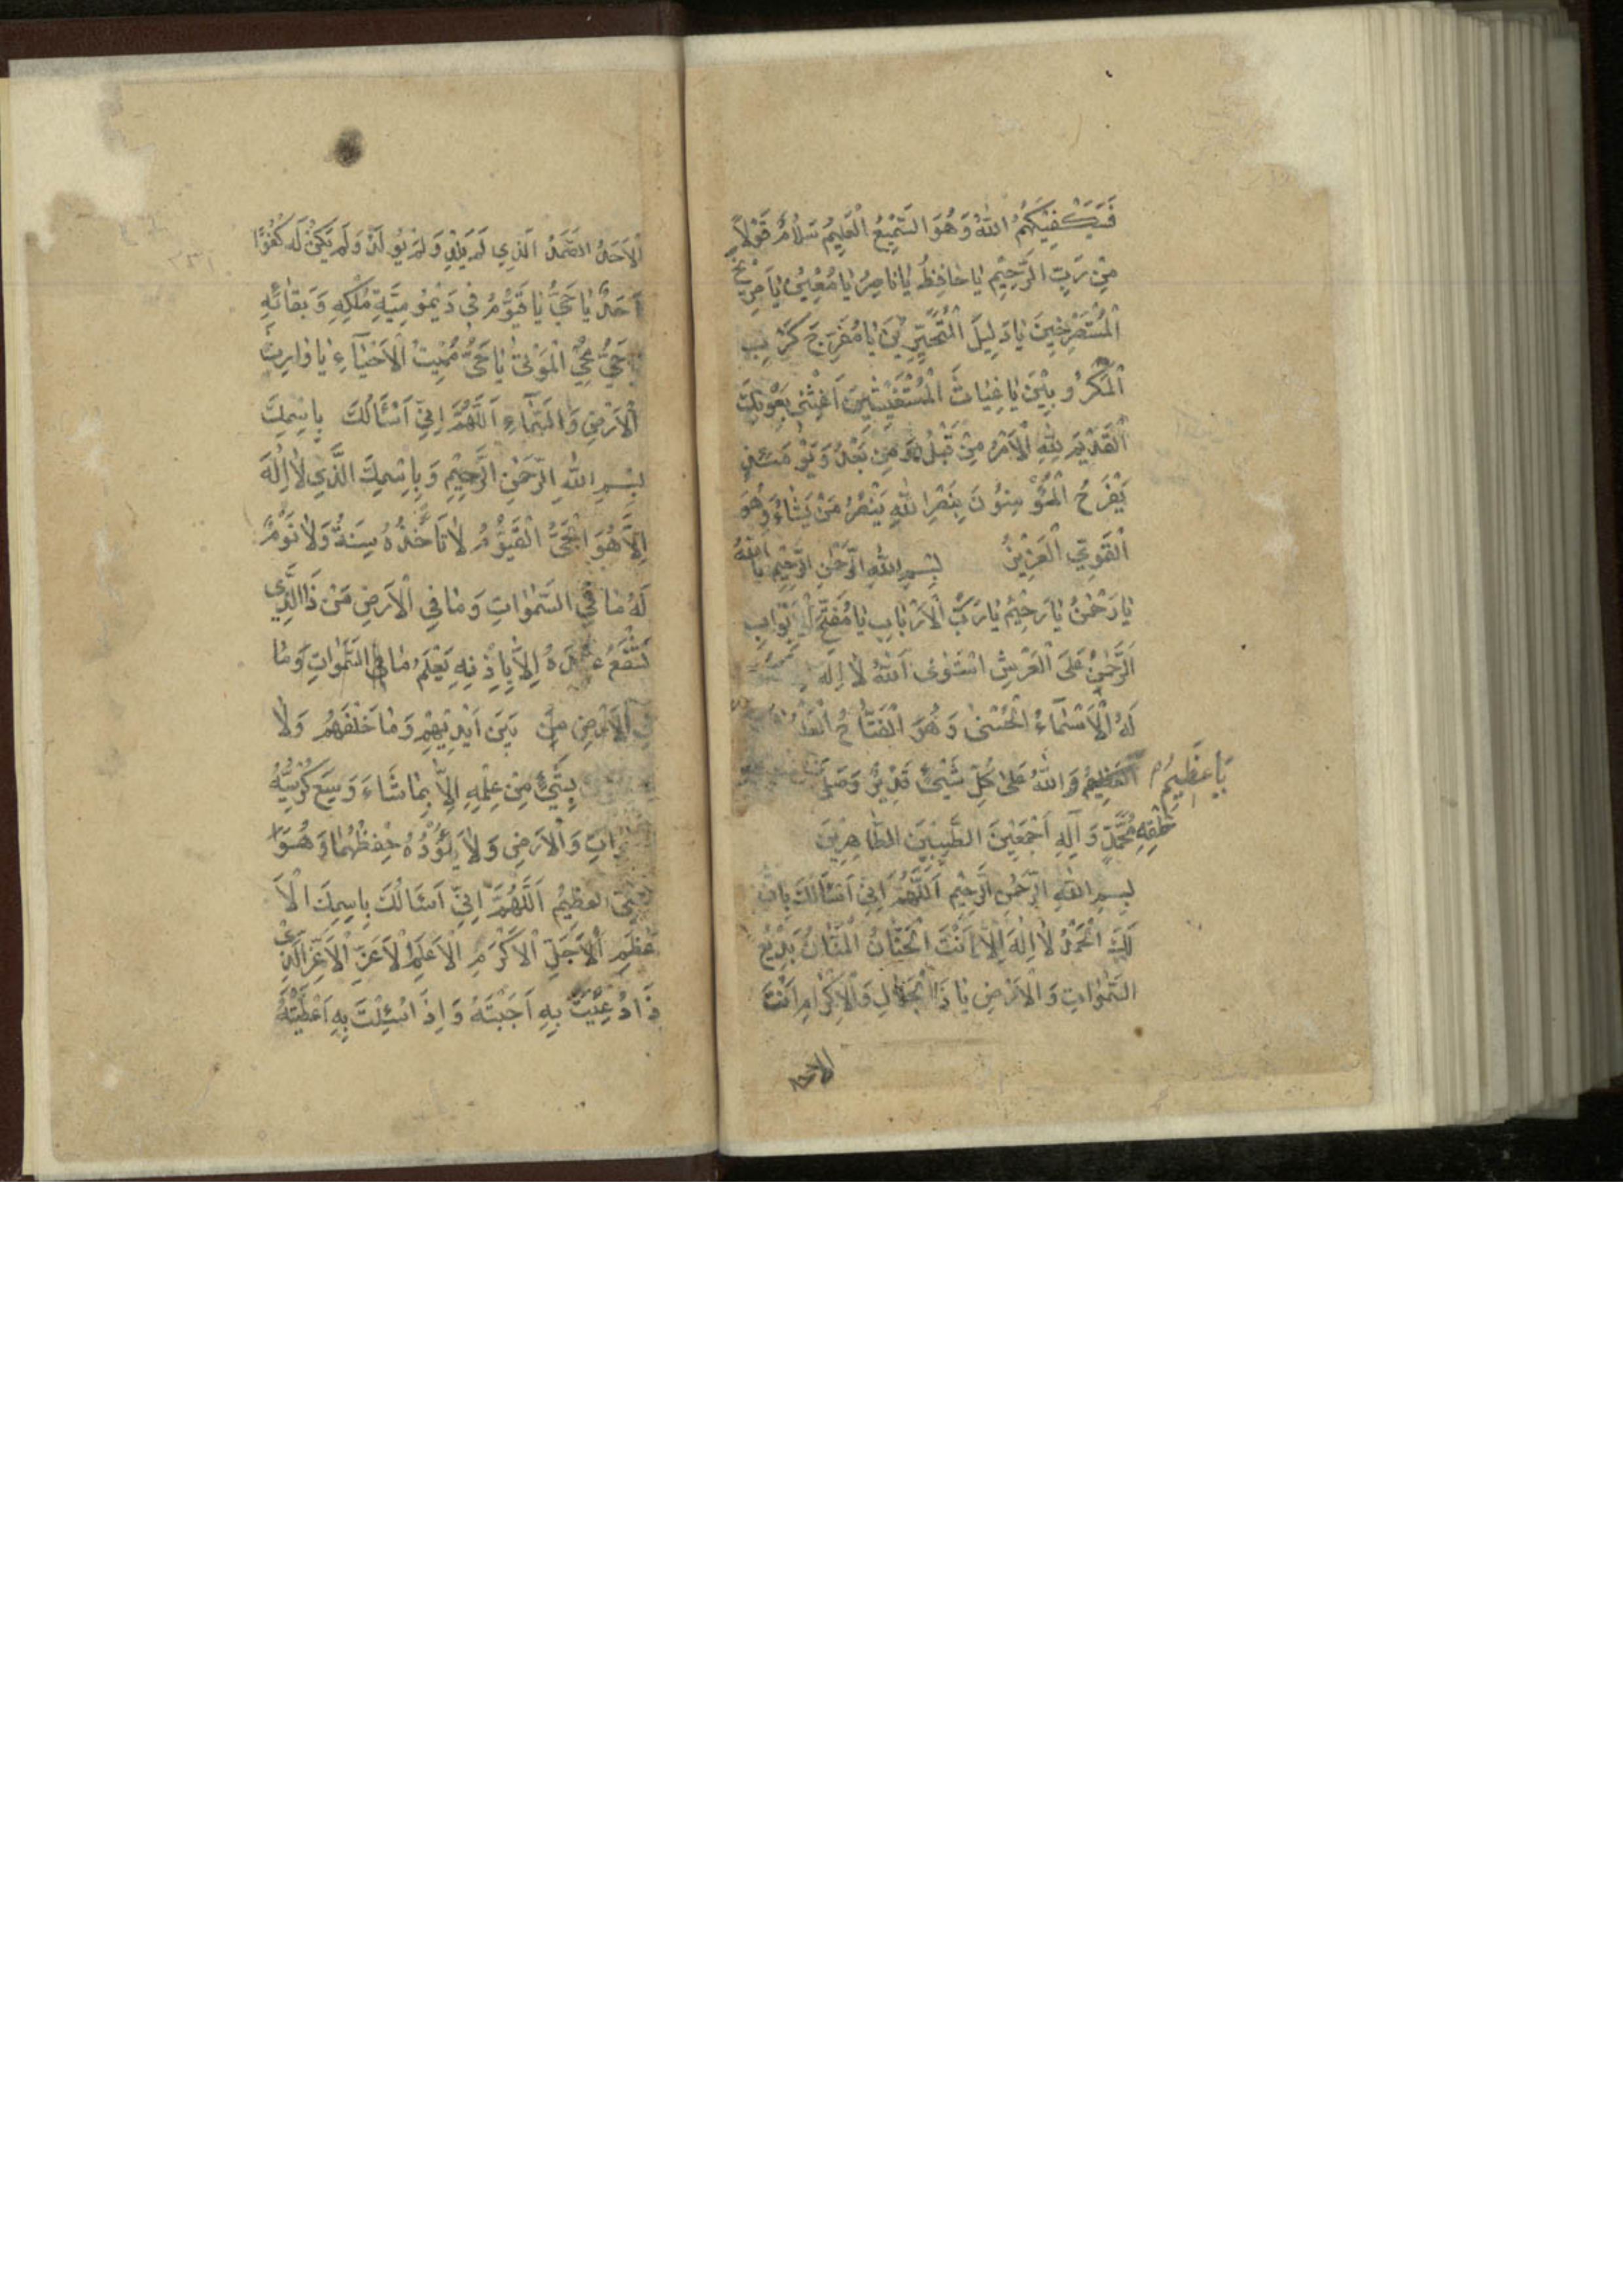 فَسَيَكْفِيْكَهُمُ اللهُ وَهُوَ السَّمِيْعُ الْعَلِيْمُ سَلَامٌ قَوْلاً
مِنْ رَبٍّ الرَّحِيْمِ يَا حَافِظُ يَا نَاصِرُ يَا مُعِيْنُ يَا صَرِيْخَ
الْمُسْتَصْرِخِيْنَ يَا دَلِيلَ الْمُتَحَيِّرِيْنَ يَا مُفَرِّجَ كَرْبِ
الْمَكْرُوبِيْنَ يَا غِيَاثَ الْمُسْتَغِيْثِيْنَ اَغِثْنِي بِعَوْنِكَ
الْقَدِيْمِ لِلّهِ الْاَمْرُ مِنْ قَبْلُ وَمِنْ بَعْدُ وَيَوْمَئِذٍ
يَفْرَحُ الْمُؤْمِنُوْنَ بِنَصْرِ اللهِ يَنْصُرُ مَنْ يَشَاءُ وَهُوَ
الْقَوِيُّ الْعَزِيْزُ بِسْمِ اللهِ الرَّحْمٰنِ الرَّحِيْمِ يَا اَللهُ
يَا رَحْمٰنُ يَا رَحِيْمُ يَا رَبَّ الْاَرْبَابِ يَا مُفَتِّحَ الْاَبْوَابِ
اَلرَّحْمٰنُ عَلَى الْعَرْشِ اسْتَوٰى اَللهُ لَا اِلَهَ
لَهُ الْاَسْمَاءُ الْحُسْنٰى وَهُوَ الْفَتَّاحُ
يَا عَظِيْمُ الْعَظِيْمُ وَاللهُ عَلٰى كُلِّ شَيْئٍ قَدِيْرٌ وَصَلَّى
خَلْقِهِ مُحَمَّدٍ وَ آلِهِ اَجْمَعِيْنَ الطَّيِّبِيْنَ الطَّاهِرِيْنَ
بِسْمِ اللهِ الرَّحْمٰنِ الرَّحِيْمِ اَللَّهُمَّ اِنِّي اَسْئَالُكَ بِاَنَّ
لَكَ الْحَمْدُ لَا اِلَهَ اِلَّا اَنْتَ الْحَنَّانُ الْمَنَّانُ بَدِيْعُ
السَّمٰوَاتِ وَالْاَرْضِ يَا ذَا الْجَلَالِ وَالْاِكْرَامِ اَنْتَ
الاحد
الْاَحَدُ الصَّمَدُ اَلَّذِي لَمْ يَلِدْ وَلَمْ يُولَدْ وَلَمْ يَكُنْ لَهُ كُفُوًا
اَحَدٌ يَا حَيُّ يَا قَيُّوْمُ فِي دَيْمُوْمِيَّةِ مُلْكِهِ وَبَقَائِهِ
حَيُّ مُحْيِ الْمَوْتٰى يَا حَيُّ مُمِيْتُ الْاَحْيَاءِ يَا وَارِثَ
الْاَرْضِ وَالسَّمَاءِ اَللَّهُمَّ اِنِّي اَسْئَالُكَ بِاسْمِكَ
بِسْمِ اللهِ الرَّحْمٰنِ الرَّحِيْمِ وَبِاِسْمِكَ الَّذِي لَا اِلَهَ
اِلَّا هُوَ الْحَيُّ الْقَيُّوْمُ لَا تَاْخُذُهُ سِنَةٌ وَلَا نَوْمٌ
لَهُ مَا فِي السَّمٰوَاتِ وَمَا فِي الْاَرْضِ مَنْ ذَا الَّذِي
يَشْفَعُ عِنْدَهُ اِلَّا بِاِذْنِهِ يَعْلَمُ مَا فِي السَّمٰوَاتِ وَمَا
فِي الْاَرْضِ بَيْنَ اَيْدِيْهِمْ وَمَا خَلْفَهُمْ وَلَا
بِشَيْئٍ مِنْ عِلْمِهِ اِلَّا بِمَا شَاءَ وَسِعَ كُرْسِيُّهُ
وَاتِ وَالْاَرْضِ وَلَا يَئُوْدُهُ حِفْظُهُمَا وَهُوَا
الْعَظِيْمُ اَللَّهُمَّ اِنِّي اَسْئَالُكَ بِاسِمِكَ الْاَ
عْظَمِ الْاَجَلِّ الْاَكْرَمِ الْاَعَزِّ الْاَعَزِّ الَّذِي
ذَا دُعِيْتَ بِهِ اَجَبْتَهُ وَاِذَ اسُئِلْتَ بِهِ اَعْطَيْتَهُ